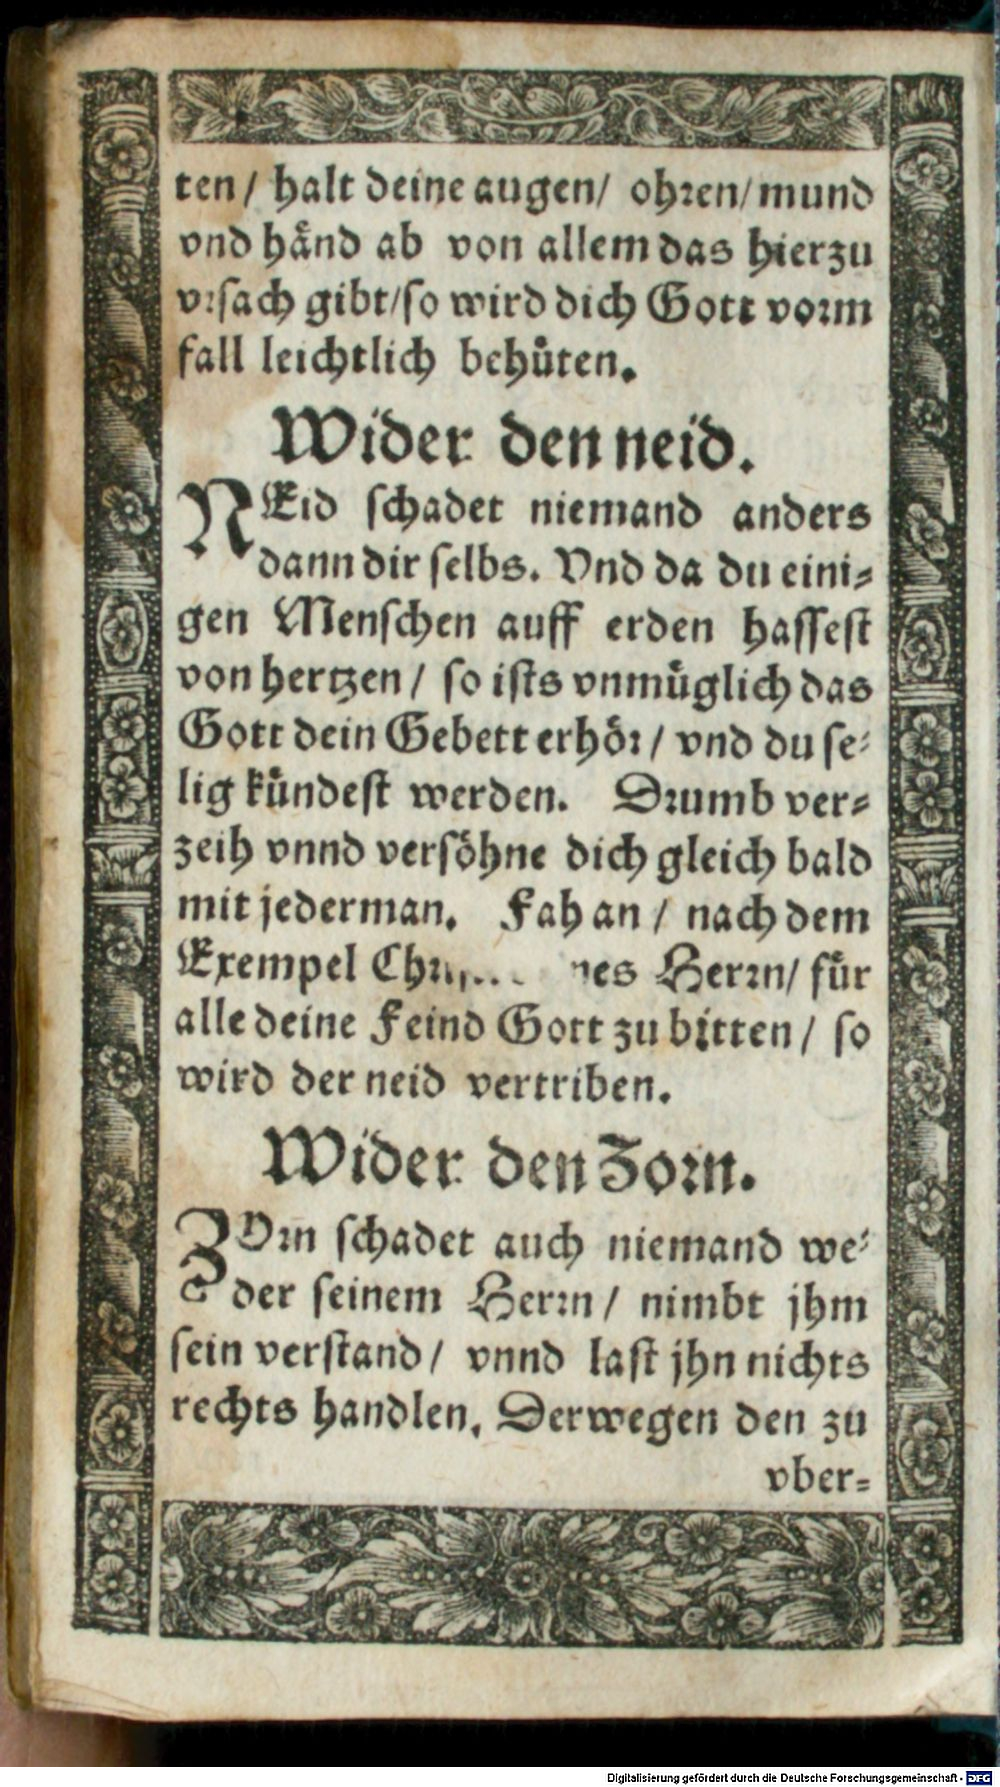 ten / halt deine augen / ohren / mund
vnd hånd ab von allem das hierzu
vrsach gibt / so wird dich Gott vorm
fall leichtlich behůten.
Wider den neid.
NEid schadet niemand anders
dann dir selbs. Vnd da du eini-
gen Menschen auff erden hassest
von hertzen / so ists vnmůglich das
Gott dein Gebett erhȯr / vnd du se-
lig kůndest werden. Drumb ver-
zeih vnnd versȯhne dich gleich bald
mit jederman. Fah an / nach dem
Exempel Herrn / fůr
alle deine Feind Gott zu bitten / so
wird der neid vertriben.
Wider den Zorn.
ZOrn schadet auch niemand we-
der seinem Herrn / nimbt jhm
sein verstand / vnnd last jhn nichts
rechts handlen. Derwegen den zu
vber-
Digitalisierung gefördert durch die Deutsche Forschungsgemeinschaft - DFG